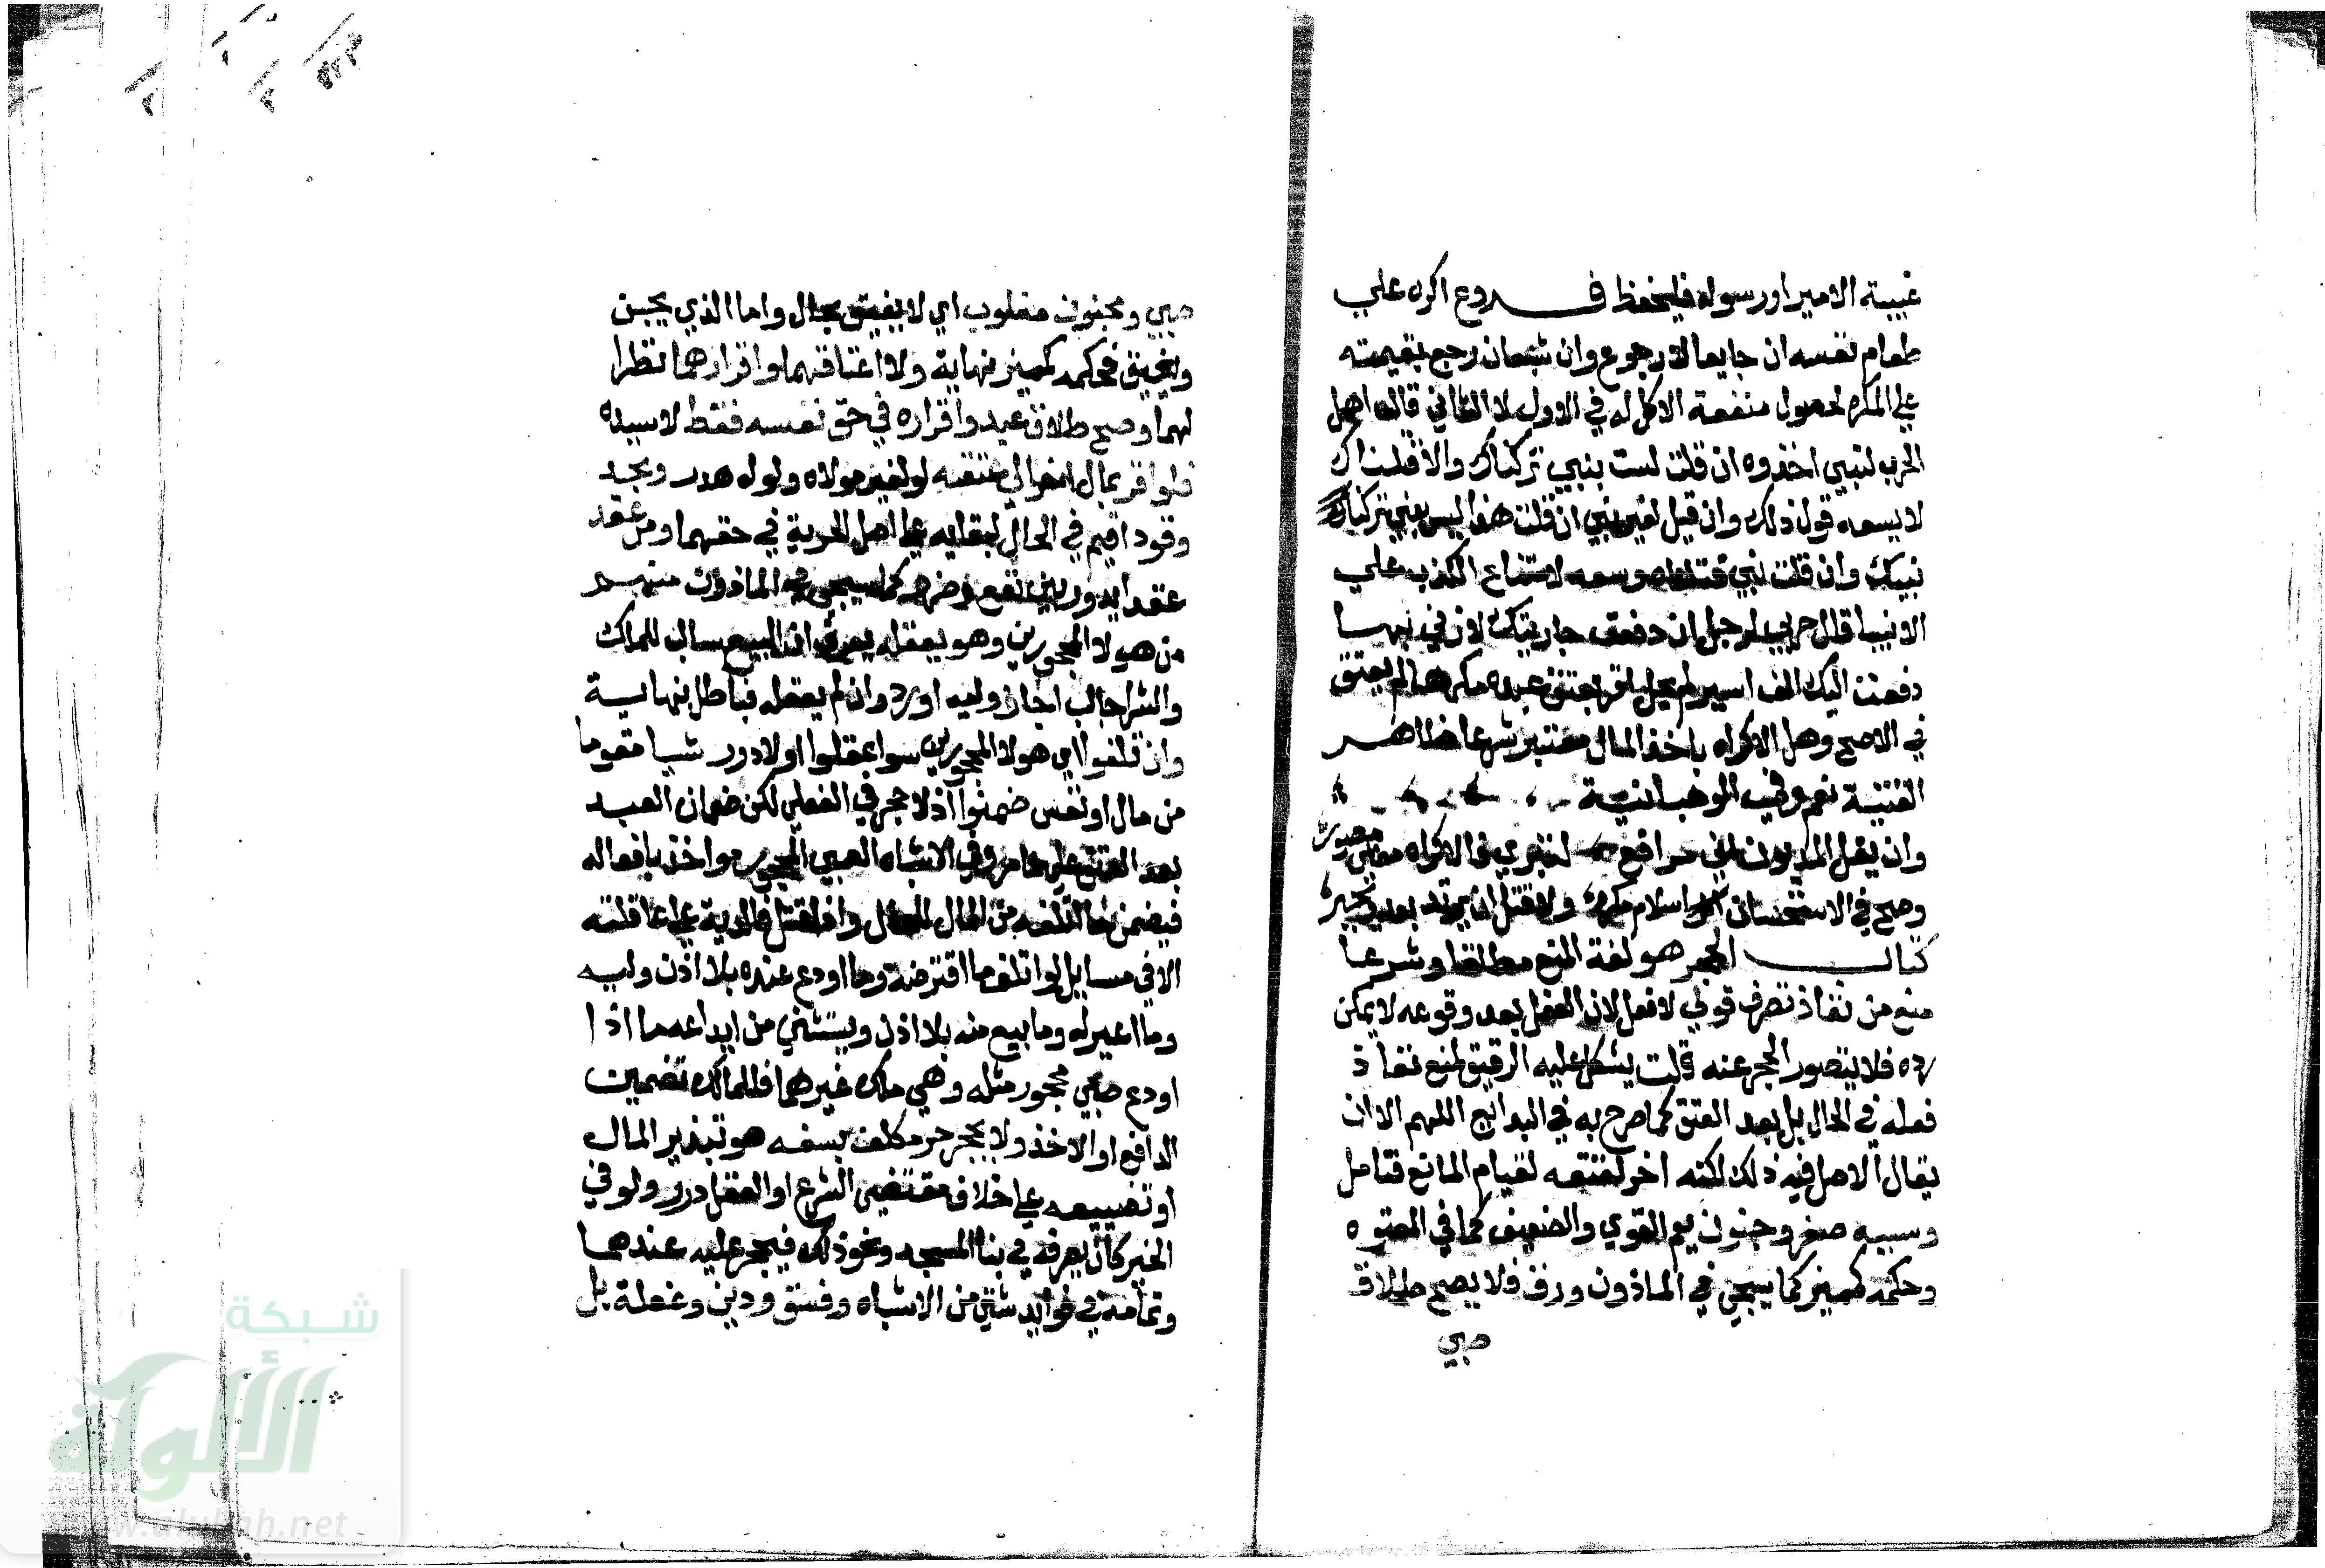 غيبة الامير او رسوله فليحفظ فروع اكره علي
طعام نفسه ان جايعا لا رجوع وان شبعان رجع بقيمته
علي المكره لحصول منفعة الاكل له في الاول لا الثاني قال اهل
الحرب لنبي اخذوه ان قلت لست بنبي تركناك والا قتلناك
لا يسعه قول ذلك وان قيل لغير نبي ان قلت هذا ليس بنبي تركنا
نبيك وان قلت نبي قتلناه وسعه لامتناع الكذب علي
الانبيا قال حربي لرجل ان دفعت جاريتك لازني بها
دفعت اليك الف اسير لم يحل اقر بعتق عبده مكرها لم يعتق
في الاصح وهل الاكراه باخذ المال معتبر شرعا ظاهر
القنية نعم وفي الوهبانية
وان يقل المديون اني مرافع لتبري فالاكراه معني مصور
وصح في الاستحسان اسلام مكره ولا قتل ان يرتد بعد ويجبر
كتاب الحجر هو لغة المنع مطلقا وشرعا
منع من نفاذ تصرف قولي لا فعلي لان الفعل بعد وقوعه لا يمكن
رده فلا يتصور الحجر عنه قلت يشكل عليه الرقيق لمنع نفاذ
فعله في الحال بل بعد العتق كما صرح به في البدايع اللهم الا ان
يقال الاصل فيه ذلك لكنه اخر لعتقه لقيام المانع فتامل
وسببه صغر وجنون يعم القوي والضعيف كما في المعتوه
وحكمه كمميز كما يسجي في الماذون ورق فلا يصح طلاق
صبي
صبي ومجنون مغلوب اي لا يفيق بحال واما الذي يجن
ويفيق فحكمه كمميز نهاية ولا اعتاقهما واقرارهما نظرا
لهما وصح طلاق عبد واقراره في حق نفسه فقط لا سيده
فلو اقر بمال اخر الي عتقه لو لغير مولاه ولو له هدر وبحد
وقود اقيم في الحال لبقايه علي اصل الحرية في حقهما ومن عقد
عقدا يدور بين نفع وضرر كما سيجي في الماذون منهم
من هولا المحجورين وهو يعقله يعرف ان البيع سالب للملك
والشرا جالب اجاز وليه او رد وان لم يعقله فباطل نهاية
وان تلفوا اي هولا المحجورين سوا عقلوا اولا درر شيا مقوما
من مال او نفس ضمنوا اذ لا حجر في الفعلي لكن ضمان العبد
بعد العتق علي ما مر وفي الاشباه الصبي المحجور مواخذ بافعاله
فيضمن ما اتلفه من المال للحال واذا قتل فالدية علي عاقلته
الا في مسايل لو اتلف ما اقترضه وما اودع عنده بلا اذن وليه
وما اعير له وما بيع منه بلا اذن ويستثني من ايداعه ما اذا
اودع صبي محجور مثله وهي ملك غيرهما فللمالك تضمين
الدافع او الاخذ ولا يحجر حر مكلف بسفه هو تبذير المال
او تضييعه علي خلاف مقتضي الشرع او العقل درر ولو في
الخير كان يصرفه في بنا المسجد ونحو ذلك فيحجر عليه عندهما
وتمامه في فوايد شتي من الاشباه وفسق ودين وغفلة بل
شبكة
الألوكة
www.alukah.net